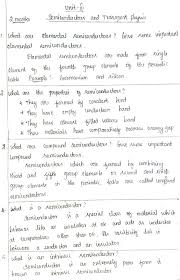 Unit-II
2 marks Semiconductors and Transport Physics
1. What are Elemental Semiconductors? Give some important
elemental semiconductors
Elemental semiconductors are made from single
element of the fourth group elements of the periodic
table Example: Germanium and silicon
2. What are the properties of semiconductor?
* They are formed by covalent bond
* They have empty conduction band
* They have almost filled valence band
* These materials have comparatively narrow energy gap
3. What are compound Semiconductors? Give some important
compound Semiconductors
Semiconductors which are formed by combining
third and fifth group elements or second and sixth
group elements in the periodic table are called compound
semiconductors
4. What is a Semiconductor?
Semiconductor is a special class of material which
behaves like an insulator at 0K and acts as conductor
at temperature other than 0K. Its resistivity lies in
between a conductor and an insulator
5. What is an intrinsic semiconductor?
Semiconductor in